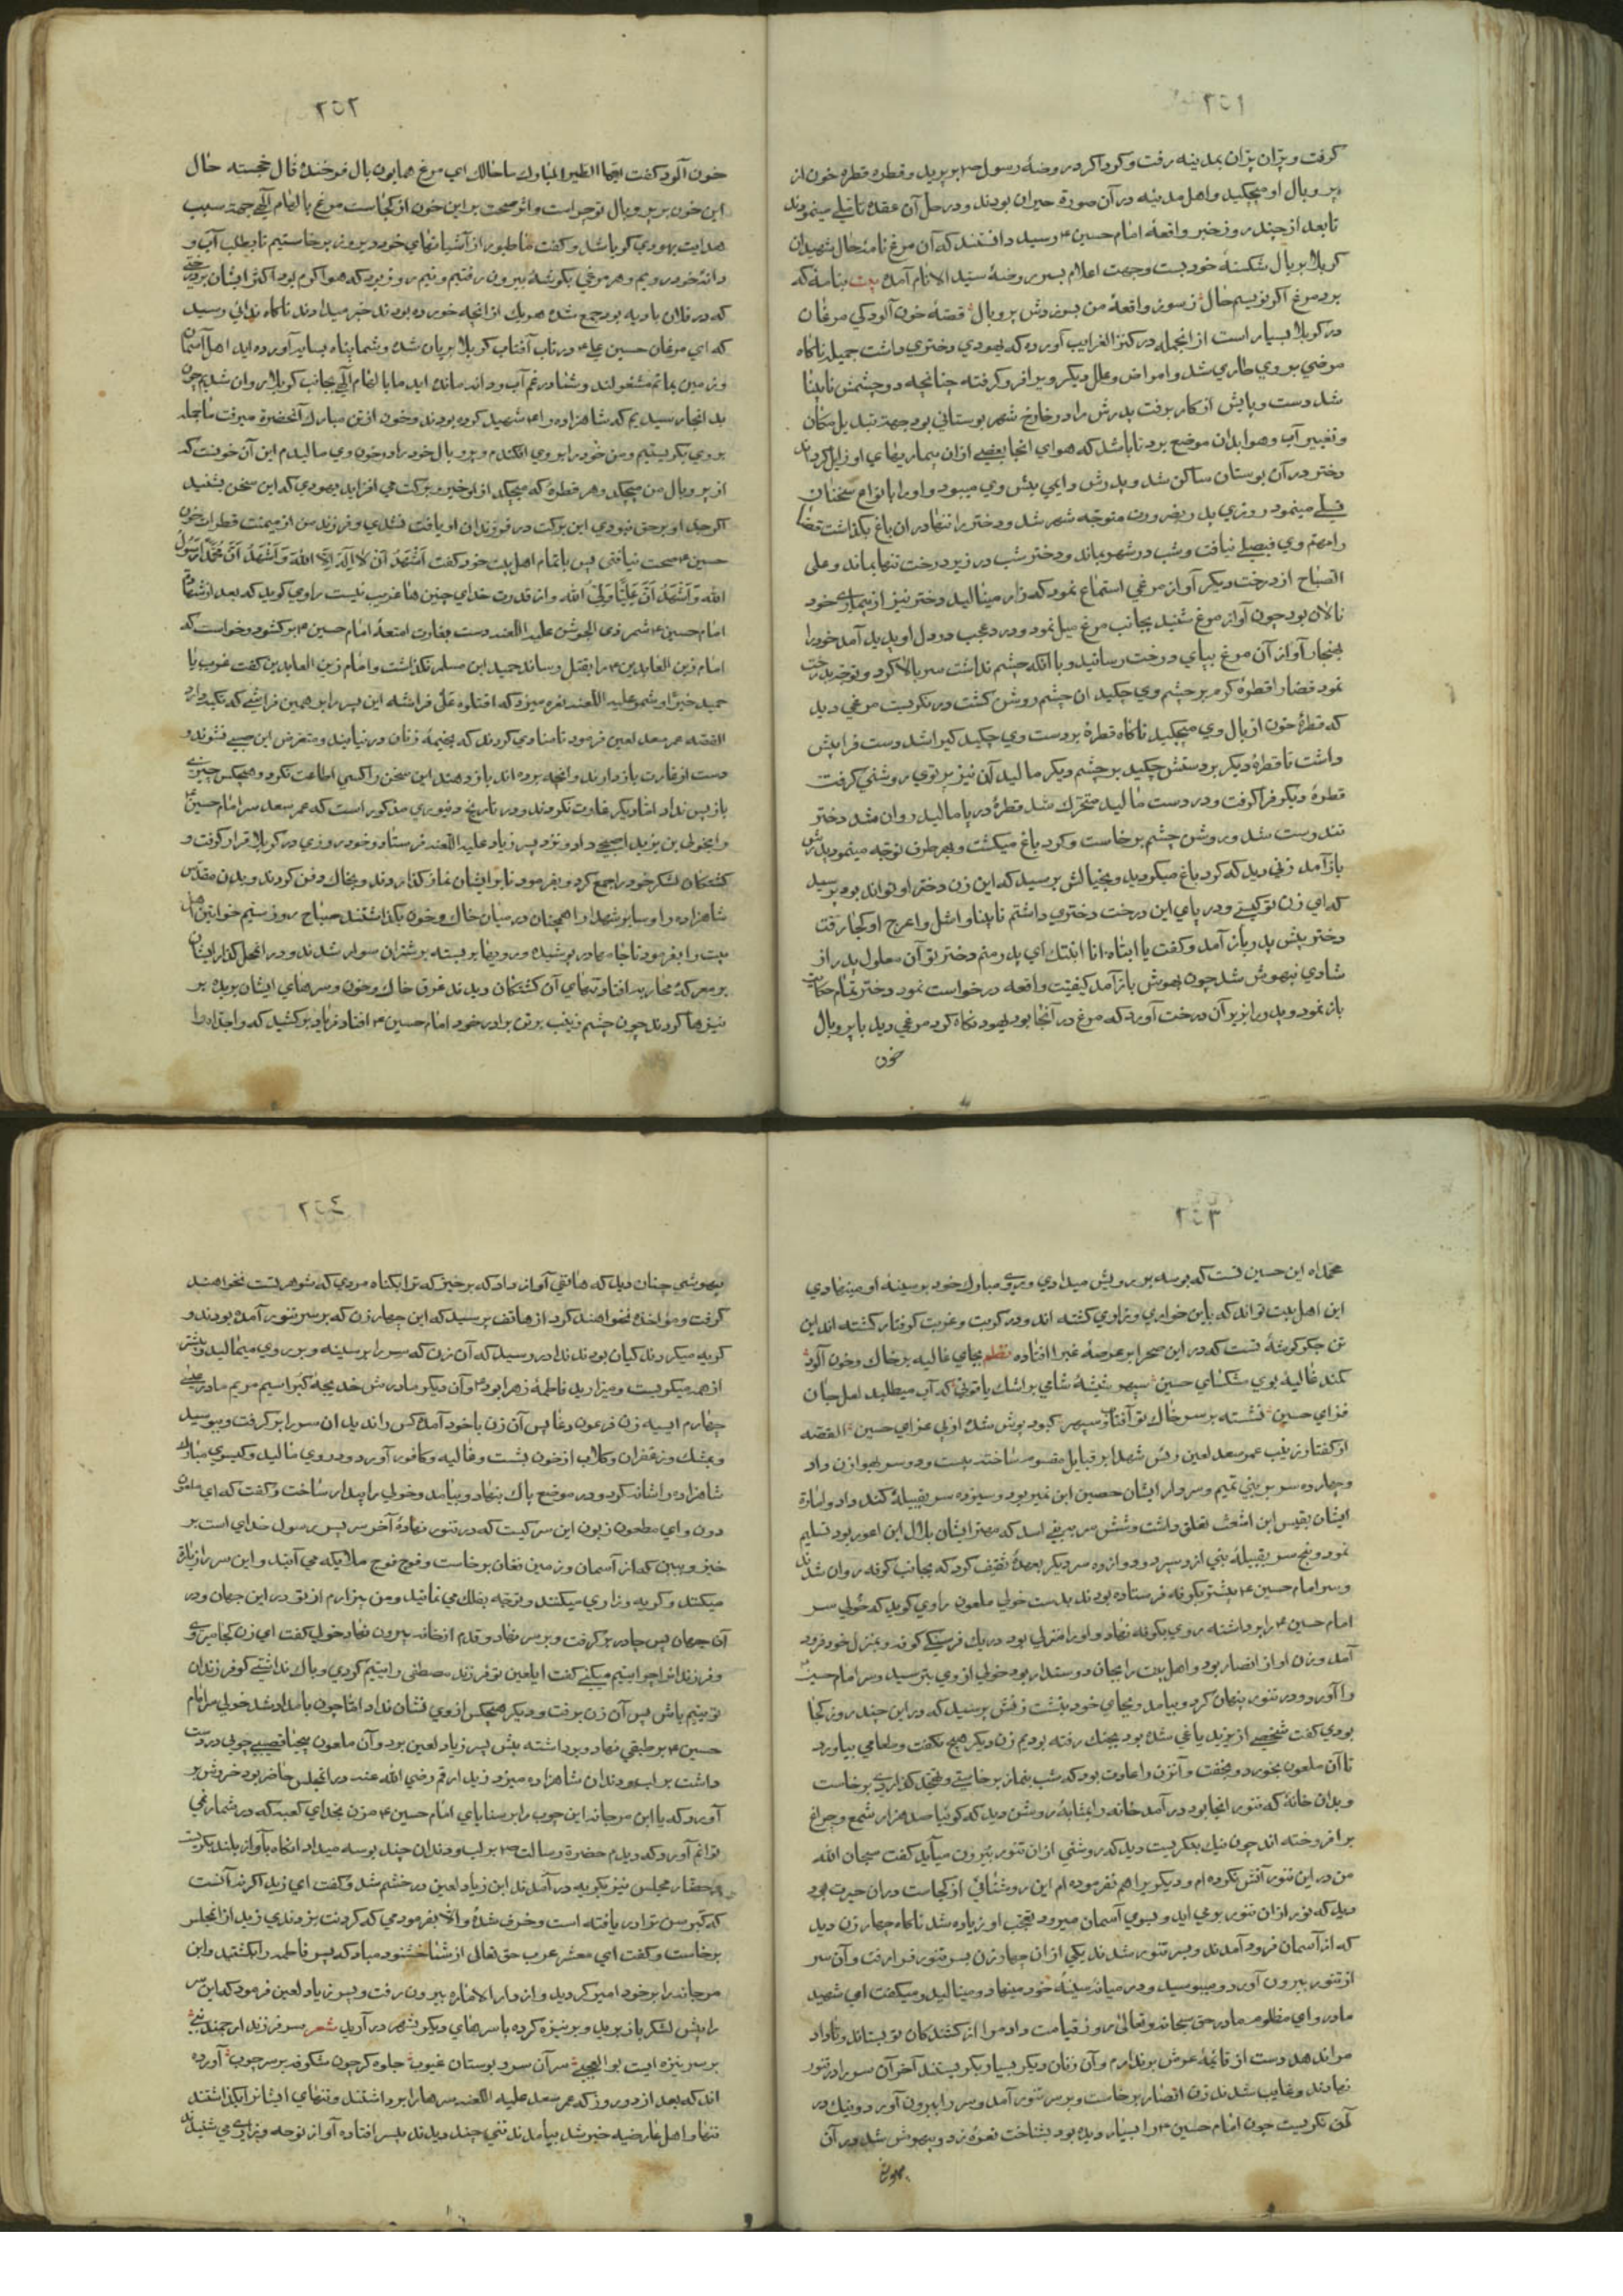 ٢٥١
گرفت و پران پران بمدینه رفت و گرداگرد روضهٔ رسول ص بر پرید و قطره قطره خون از
پر و بال او میچکید و اهل مدینه در آن صورة حیران بودند و در حل آن عقده تاملی مینمودند
تا بعد از چند روز خبر واقعهٔ امام حسین ع رسید دانستند که آن مرغ نامهٔ حال شهیدان
کربلا بر بال شکستهٔ خود بست و جهت اعلام بسر روضهٔ سید الانام آمده بیت بنامه که
برد مرغ اگر نویسم حال ز سوز واقعهٔ من بسوزدش پر و بال قصهٔ خون آلودگی مرغان
در کربلا بسیار است از انجمله در کنز الغرایب آورده که یهودی دختری داشت جمیله ناگاه
مرضی بر وی طاری شد و امراض و علل دیگر ویرا فرو گرفته چنانچه دو چشمش نابینا
شد دست و پایش از کار برفت پدرش را در خارج شهر بوستانی بود جهة تبدیل مکان
و تغییر آب و هوا بدان موضع برد تا باشد که هوای انجا بعضی ازان بیماریهای او زایل گرداند
دختر در آن بوستان ساکن شد و پدرش دایمی پیش وی میبود و او را بانواع سخنان
تسلی مینمود روزی پدر بضرورت متوجه شهر شد و دختر را تنها در ان باغ بگذاشت قضا
را مهم وی فیصلی نیافت و شب در شهر بماند و دختر شب در زیر درخت تنها بماند و علی
الصباح از درخت دیگر آواز مرغی استماع نمود که زار مینالید دختر نیز از بیماری خود
نالان بود چون آواز مرغ شنید بجانب مرغ میل نمود و درد عجب در دل او پدید آمد خود را
بهنجار آواز آن مرغ بپای درخت رسانید و با آنکه چشم نداشت سر بالا کرد و توجه بدرخت
نمود قضا را قطرهٔ گرم بر چشم وی چکید ان چشم روشن گشت در نگریست مرغی دید
که قطرهٔ خون از بال وی میچکید ناگاه قطرهٔ بر دست وی چکید گیرا شد دست فرا پیش
داشت تا قطرهٔ دیگر بر دستش چکید بر چشم دیگر مالید آن نیز پرتوی روشنی گرفت
قطرهٔ دیگر فرا گرفت و در دست مالید متحرک شد قطرهٔ در پا مالید روان شد دختر
تندرست شد و روشن چشم برخاست و گرد باغ میگشت و بهر طرف توجه مینمود پدرش
باز آمد زنی دید که گرد باغ میگردید و بخیالش نرسید که این زن دختر او تواند بود پرسید
که ای زن تو کیستی و در پای این درخت دختری داشتم نابینا و اشل و اعرج او کجا رفت
دختر پیش پدر باز آمد و گفت یا ابتاه انا ابنتک ای پدر منم دختر تو آن معلول پدر از
شادی بیهوش شد چون بهوش باز آمد کیفیت واقعه درخواست نمود دختر تمام حکایت
باز نمود و پدر را بزیر آن درخت آورد که مرغ در آنجا بود یهود نگاه کرد مرغی دید با پر و بال
خون
٢٥٢
خون آلود گفت ایها الطیر المبارک ما حالک ای مرغ همایون بال فرخنده فال خجسته حال
این خون بر پر و بال تو چراست و اثر صحت بر این خون از کجاست مرغ بالهام الهی جهة سبب
هدایت یهودی گویا شد و گفت ما طیور از آشیانهای خود دیروز برخاستیم تا بطلب آب و
دانهٔ خود رویم و هر مرغی بگوشهٔ بیرون رفتیم و نیم روز بود که هوا گرم بود اکثر ایشان بر درختی
که در فلان بادیه بود جمع شده هر یک از انچه خورده بودند خبر میدادند ناگاه ندائی رسید
که ای مرغان حسین علی ع در تاب آفتاب کربلا بریان شده و شما پناه بسایه آورده اید اهل آسمان
و زمین بماتم مشغولند و شما در غم آب و دانه مانده اید ما بالهام الهی بجانب کربلا روان شدیم چون
بد انجا رسیدیم که شاهزاده را شهید کرده بودند و خون از تن مبارک آنحضرة میرفت ما جمله
بر وی بگریستیم و من خود را بر وی افکندم و پر و بال خود را در خون وی مالیدم این آن خونست که
از پر و بال من میچکد و هر قطرهٔ که میچکد ازو خیر و برکت می افزاید یهودی که این سخن بشنید
اگر جد او بر حق نبودی این برکت در فرزندان او یافت نشدی و فرزند من از میمنت قطرات خون
حسین ع صحت نیافتی پس با تمام اهل بیت خود گفت اَشْهَدُ اَنْ لا اِلَهَ اِلَّا اللهَ وَ اَشْهَدُ اَنَّ مُحَمَّداً رَسُولُ
الله وَ اَشْهَدُ اَنَّ عَلِیّاً وَلِیُّ الله و از قدرت خدای چنین ها غریب نیست راوی گوید که بعد از شهادة
امام حسین ع شمر ذی الجوشن علیه اللعنه دست بغارت امتعهٔ امام حسین ع برگشود و خواست که
امام زین العابدین ع را بقتل رساند حمید ابن مسلم نگذاشت و امام زین العابدین گفت
القصه عمر سعد لعین فرمود تا منادی کردند که بخیمهٔ زنان در نیایند و متعرض این صبی نشوند و
دست از غارت باز دارند و انچه برده اند باز دهند این سخن را کسی اطاعت نکرد و هیچکس چیزی
باز پس نداد اما دیگر غارت نکردند و در تاریخ دینوری مذکور است که عمر سعد سر امام حسین ع
را بخولی بن یزید اصبحی داد و نزد پسر زیاد علیه اللعنه فرستاد و خود روزی در کربلا قرار گرفت و
کشتگان لشکر خود را جمع کرد و بفرمود تا بر ایشان نماز گذاردند و بخاک دفن کردند و بدن مقدس
شاهزاده و سایر شهدا را همچنان در میان خاک و خون بگذاشتند صباح روز سیم خواتین اهل
بیت را بفرمود تا جامه سیاه پوشیده و رویها بر بسته بر شتران سوار شدند و در انمحل گذار ایشان
بر معرکهٔ محاربه افتاد تنهای آن کشتگان دیدند غرق خاک و خون و سرهای ایشان بریده بر
نیزها کردند چون چشم زینب بر تن برادر خود امام حسین ع افتاد فریاد برکشید که وا جداه وا
٢٥٣
محمداه این حسین تست که بوسه بر رویش میدادی و روی مبارک خود بر سینه او مینهادی
این اهل بیت تواند که باین خواری و زاری کشته اند و در کربت و غربت گرفتار گشته اند این
تن جگر گوشهٔ تست که در این صحرا بر عرصهٔ غبرا افتاده نظم بجای غالیه بر خاک و خون آلود
کنند غالیهٔ بوی مشکسای حسین سپهر شیشهٔ شامی بر اشک یاقوتی که آب میطلبد لعل جان
فزای حسین نشسته بر سر خاک تو آفتاب سپهر کبود پوش شده از پی عزای حسین القصه
از گفتار زینب عمر سعد لعین رؤس شهدا بر قبایل مقسوم ساخته بیست و دو سر بهوازن داد
و چهارده سر ببنی تمیم و سردار ایشان حصین ابن نمیر بود و سیزده سر بقبیلهٔ کنده داد و امارة
ایشان بقیس ابن اشعث تعلق داشت و شش سر ببنی اسد که مهتر ایشان بلال ابن اعور بود تسلیم
نمود و پنج سر بقبیلهٔ بنی ازد سپرد و دوازده سر دیگر بعهدهٔ ثقیف کرد که بجانب کوفه روان شدند
و سر امام حسین ع پیشتر بکوفه فرستاده بودند بدست خولی ملعون راوی گوید که خولی سر
امام حسین ع را برداشته روی بکوفه نهاد و او را منزلی بود در یک فرسنگی کوفه و بمنزل خود فرود
آمد و زن او از انصار بود و اهل بیت را بجان دوستدار بود خولی از وی بترسید و سر امام حسین ع
را آورد و در تنور پنهان کرد و بیامد و بجای خود بنشست زنش پرسید که در این چند روز کجا
بودی گفت شخصی از یزید یاغی شده بود بجنک رفته بودیم زن دیگر هیچ نگفت و طعامی بیاورد
تا آن ملعون بخورد و بخفت و آنزن را عادت بود که شب بنماز برخاستی و تهجد گذاردی برخاست
و بدان خانهٔ که تنور انجا بود در آمد خانه را بمثابهٔ روشن دید که گوئیا صد هزار شمع و چراغ
بر افروخته اند چون نیک بنگریست دید که روشنی ازان تنور بیرون میآید گفت سبحان الله
من در این تنور آتش نکرده ام و دیگریرا هم نفرموده ام این روشنائی از کجاست دران حیرت بود
دید که نور ازان تنور بر می اید و بسوی آسمان میرود تعجب او زیاده شد ناگاه چهار زن دید
که از آسمان فرود آمدند و بسر تنور شدند یکی از ان چهار زن بسر تنور فرا رفت و آن سر
از تنور بیرون آورد و میبوسید و در میانه سینهٔ خود مینهاد و مینالید و میگفت ای شهید
مادر و ای مظلوم مادر حق سبحانه و تعالی روز قیامت داد مرا از کشندگان تو بستاند و تا داد
مرا ندهد دست از قائمهٔ عرش بر ندارم و آن زنان دیگر بسیار بگریستند آخر آن سر را در تنور
نهادند و غایب شدند زن انصار برخاست و بر سر تنور آمد و سر را بیرون آورد و نیک در
نگریست چون امام حسین ع را بسیار دیده بود بشناخت نعرهٔ زد و بیهوش شد در آن
بیهوشی
٢٥٤
بیهوشی چنان دید که هاتفی آواز داد که برخیز که ترا بگناه مردی که شوهر تست نخواهند
گرفت و مؤاخذه نخواهند کرد از هاتف پرسید که این چهار زن که بر سر تنور آمده بودند و
گریه میکردند کیان بودند ندا در رسید که آن زن که سر را بر سینه و بر روی میمالید و بیشتر
از همه میگریست و میزارید فاطمهٔ زهرا بود ع و آن دیگر مادرش خدیجهٔ کبرا سیم مریم مادر عیسی
چهارم آسیه زن فرعون پس آن زن با خود آمد کس را ندید ان سر را بر گرفت و ببوسید
و بمشک و زعفران و گلاب از خون بشست و غالیه و کافور آورد و در وی مالید و گیسوی مبارک
شاهزاده را شانه کرد و در موضع پاک بنهاد و بیامد و خولی را بیدار ساخت و گفت که ای ملعون
دون و ای مطعون زبون این سر کیست که در تنور نهادهٔ آخر سر پسر رسول خدای است بر
خیز و ببین که از آسمان و زمین فغان برخاست و فوج فوج ملایکه می آیند و این سر را زیارة
میکنند و گریه و زاری میکنند و توجه بفلک می نمایند و من بیزارم از تو در این جهان و در
آن جهان پس چادر بر گرفت و بر سر نهاد و قدم از خانه بیرون نهاد خولی گفت ای زن کجا میروی
و فرزندانرا چرا یتیم میکنی گفت ای لعین تو فرزند مصطفی را یتیم کردی و باک نداشتی گو فرزندان
تو یتیم باش پس آن زن برفت و دیگر هیچکس از وی نشان نداد اما چون بامداد شد خولی سر امام
حسین ع بر طبقی نهاد و برداشته پیش پسر زیاد لعین بود و آن ملعون قضیبی چوبی در دست
داشت بر لب و دندان شاهزاده میزد زید ارقم رضی الله عنه در انمجلس حاضر بود خروش بر
آورد که یا ابن مرجانه این چوب را بر سنایای امام حسین ع مزن بخدای کعبه که در شمار نمی
توانم آورد که دیدم حضرة رسالت ص بر لب و دندان چند بوسه میداد انگاه بآواز بلند بگریست
حضار مجلس نیز بگریه در آمدند ابن زیاد لعین در خشم شد و گفت ای زید اگر نه آنست
که کبر سن ترا دریافته است و خرف شدهٔ و الا بفرمودمی که گردنت بزدندی زید از انمجلس
برخاست و گفت ای معشر عرب حق تعالی از شما خشنود مباد که پسر فاطمه را بکشتید و ابن
مرجانه را بر خود امیر کردید و از دار الاماره بیرون رفت و پسر زیاد لعین فرمود که این سر
را پیش لشکر باز برید و بر نیزه کرده با سرهای دیگر بشهر در آرید شعر سر فرزند ارجمند نبی
بر سر نیزه ایست بو العجبی سر آن سرو بوستان غیوب جلوه گر چون شکوفه بر سر چوب آورده
اند که بعد از دو روز که عمر سعد علیه اللعنه سرها را برداشتند و تنهای ایشانرا بگذاشتند
تنها و اهل غاضریه خبر شد بیامدند تنی چند دیدند بیسر افتاده آواز نوحه و زاری می شنیدند